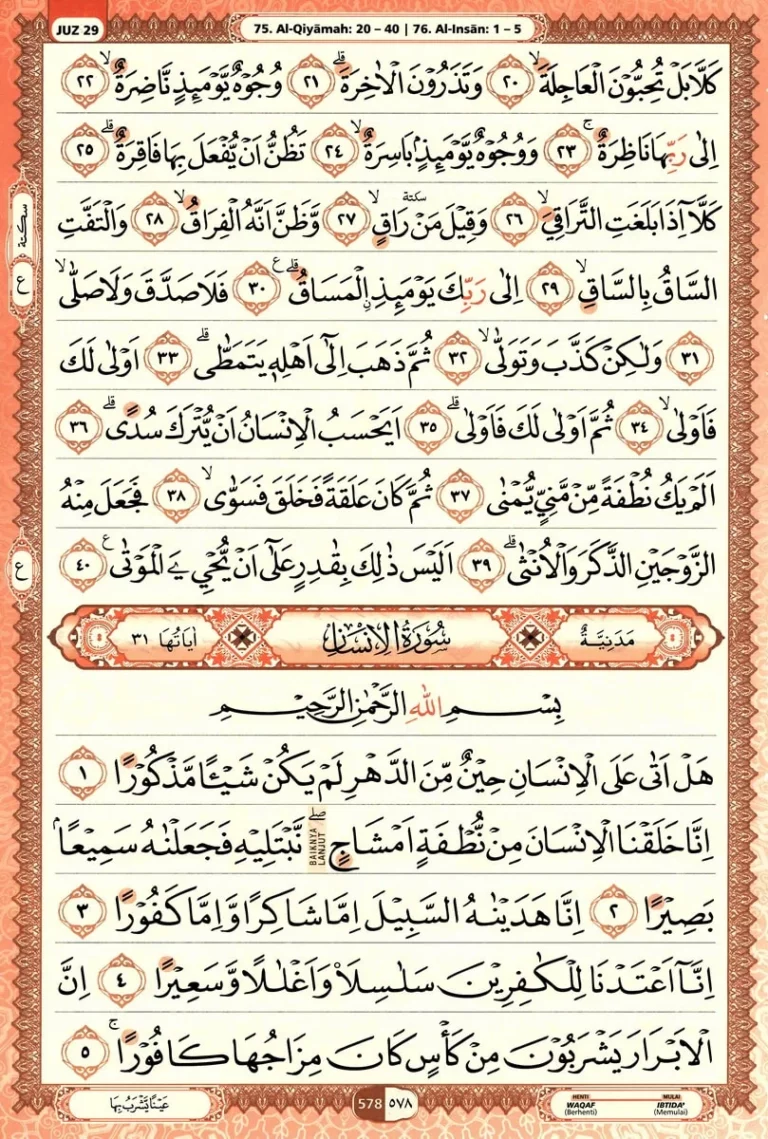 JUZ 29
75. Al-Qiyāmah: 20 – 40 | 76. Al-Insān: 1 – 5
كَلَّا بَلْ تُحِبُّوْنَ الْعَاجِلَةَۙ ٢٠ وَتَذَرُوْنَ الْاٰخِرَةَۗ ٢١ وُجُوْهٌ يَّوْمَىِٕذٍ نَّاضِرَةٌۙ ٢٢
اِلٰى رَبِّهَا نَاظِرَةٌۚ ٢٣ وَوُجُوْهٌ يَّوْمَىِٕذٍۢ بَاسِرَةٌۙ ٢٤ تَظُنُّ اَنْ يُّفْعَلَ بِهَا فَاقِرَةٌۗ ٢٥
كَلَّآ اِذَا بَلَغَتِ التَّرَاقِيَۙ ٢٦ وَقِيْلَ مَنْ سكتة رَاقٍۙ ٢٧ وَّظَنَّ اَنَّهُ الْفِرَاقُۙ ٢٨ وَالْتَفَّتِ
سكتة
ع
السَّاقُ بِالسَّاقِۙ ٢٩ اِلٰى رَبِّكَ يَوْمَىِٕذِ ِۨالْمَسَاقُۗ ع ٣٠ فَلَا صَدَّقَ وَلَا صَلّٰىۙ
٣١ وَلٰكِنْ كَذَّبَ وَتَوَلّٰىۙ ٣٢ ثُمَّ ذَهَبَ اِلٰٓى اَهْلِهٖ يَتَمَطّٰىۗ ٣٣ اَوْلٰى لَكَ
فَاَوْلٰىۙ ٣٤ ثُمَّ اَوْلٰى لَكَ فَاَوْلٰىۗ ٣٥ اَيَحْسَبُ الْاِنْسَانُ اَنْ يُّتْرَكَ سُدًىۗ ٣٦
اَلَمْ يَكُ نُطْفَةً مِّنْ مَّنِيٍّ يُّمْنٰى ٣٧ ثُمَّ كَانَ عَلَقَةً فَخَلَقَ فَسَوّٰىۙ ٣٨ فَجَعَلَ مِنْهُ
الزَّوْجَيْنِ الذَّكَرَ وَالْاُنْثٰىۗ ٣٩ اَلَيْسَ ذٰلِكَ بِقٰدِرٍ عَلٰٓى اَنْ يُّحْيِۦ َ الْمَوْتٰى ع ٤٠
ع
مَدَنِيَّةٌ سُوْرَةُ الْاِنْسَانِ اٰيَاتُهَا ٣١
بِسْمِ اللّٰهِ الرَّحْمٰنِ الرَّحِيْمِ
هَلْ اَتٰى عَلَى الْاِنْسَانِ حِيْنٌ مِّنَ الدَّهْرِ لَمْ يَكُنْ شَيْـًٔا مَّذْكُوْرًا ١
اِنَّا خَلَقْنَا الْاِنْسَانَ مِنْ نُّطْفَةٍ اَمْشَاجٍۖ BAIKNYA LANJUT نَّبْتَلِيْهِ فَجَعَلْنٰهُ سَمِيْعًاۢ
بَصِيْرًا ٢ اِنَّا هَدَيْنٰهُ السَّبِيْلَ اِمَّا شَاكِرًا وَّاِمَّا كَفُوْرًا ٣
اِنَّآ اَعْتَدْنَا لِلْكٰفِرِيْنَ سَلٰسِلَا۟ وَاَغْلٰلًا وَّسَعِيْرًا ٤ اِنَّ
الْاَبْرَارَ يَشْرَبُوْنَ مِنْ كَأْسٍ كَانَ مِزَاجُهَا كَافُوْرًاۚ ٥
عَيْنًا يَّشْرَبُ بِهَا
578 ٥٧٨
HENTI WAQAF (Berhenti) MULAI IBTIDA' (Memulai)